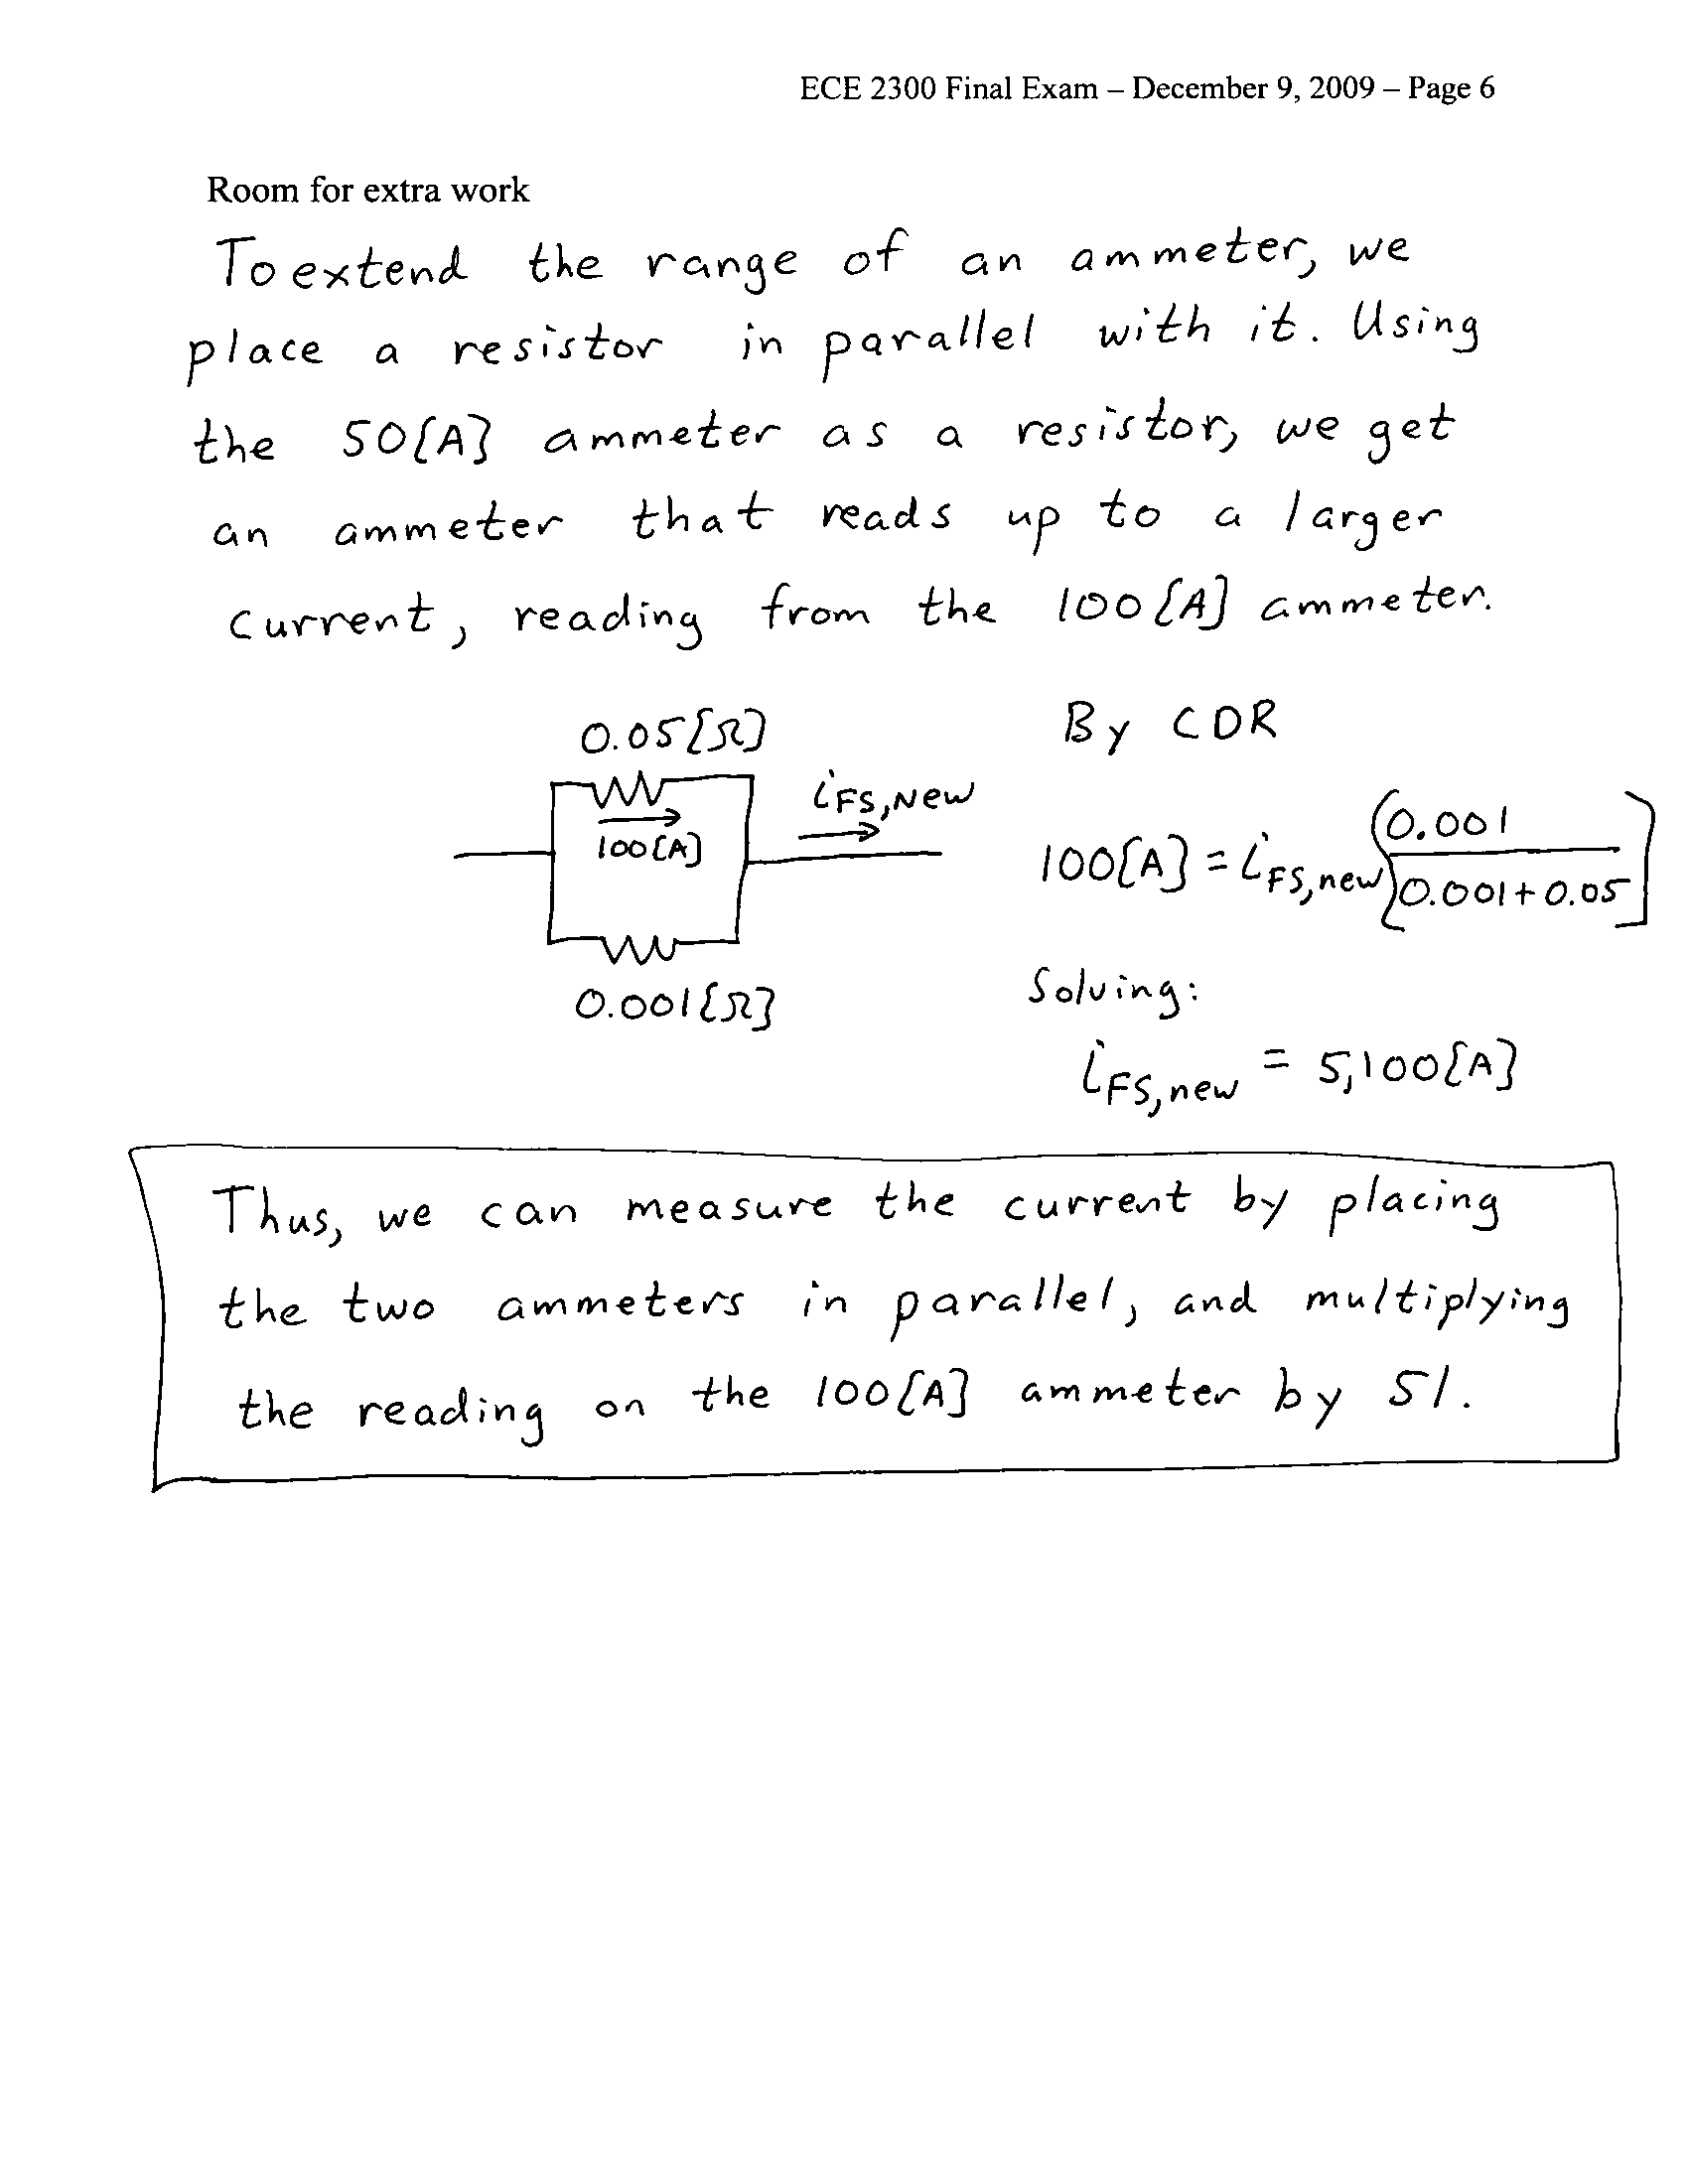 ECE 2300 Final Exam – December 9, 2009 – Page 6
Room for extra work
To extend the range of an ammeter, we
place a resistor in parallel with it. Using
the 50[A] ammeter as a resistor, we get
an ammeter that reads up to a larger
current, reading from the 100[A] ammeter.
0.05[Ω]
100[A]
iFS,New
0.001[Ω]
By CDR
100[A] = iFS,new (0.001 / 0.001 + 0.05)
Solving:
iFS,new = 5,100[A]
Thus, we can measure the current by placing
the two ammeters in parallel, and multiplying
the reading on the 100[A] ammeter by 51.